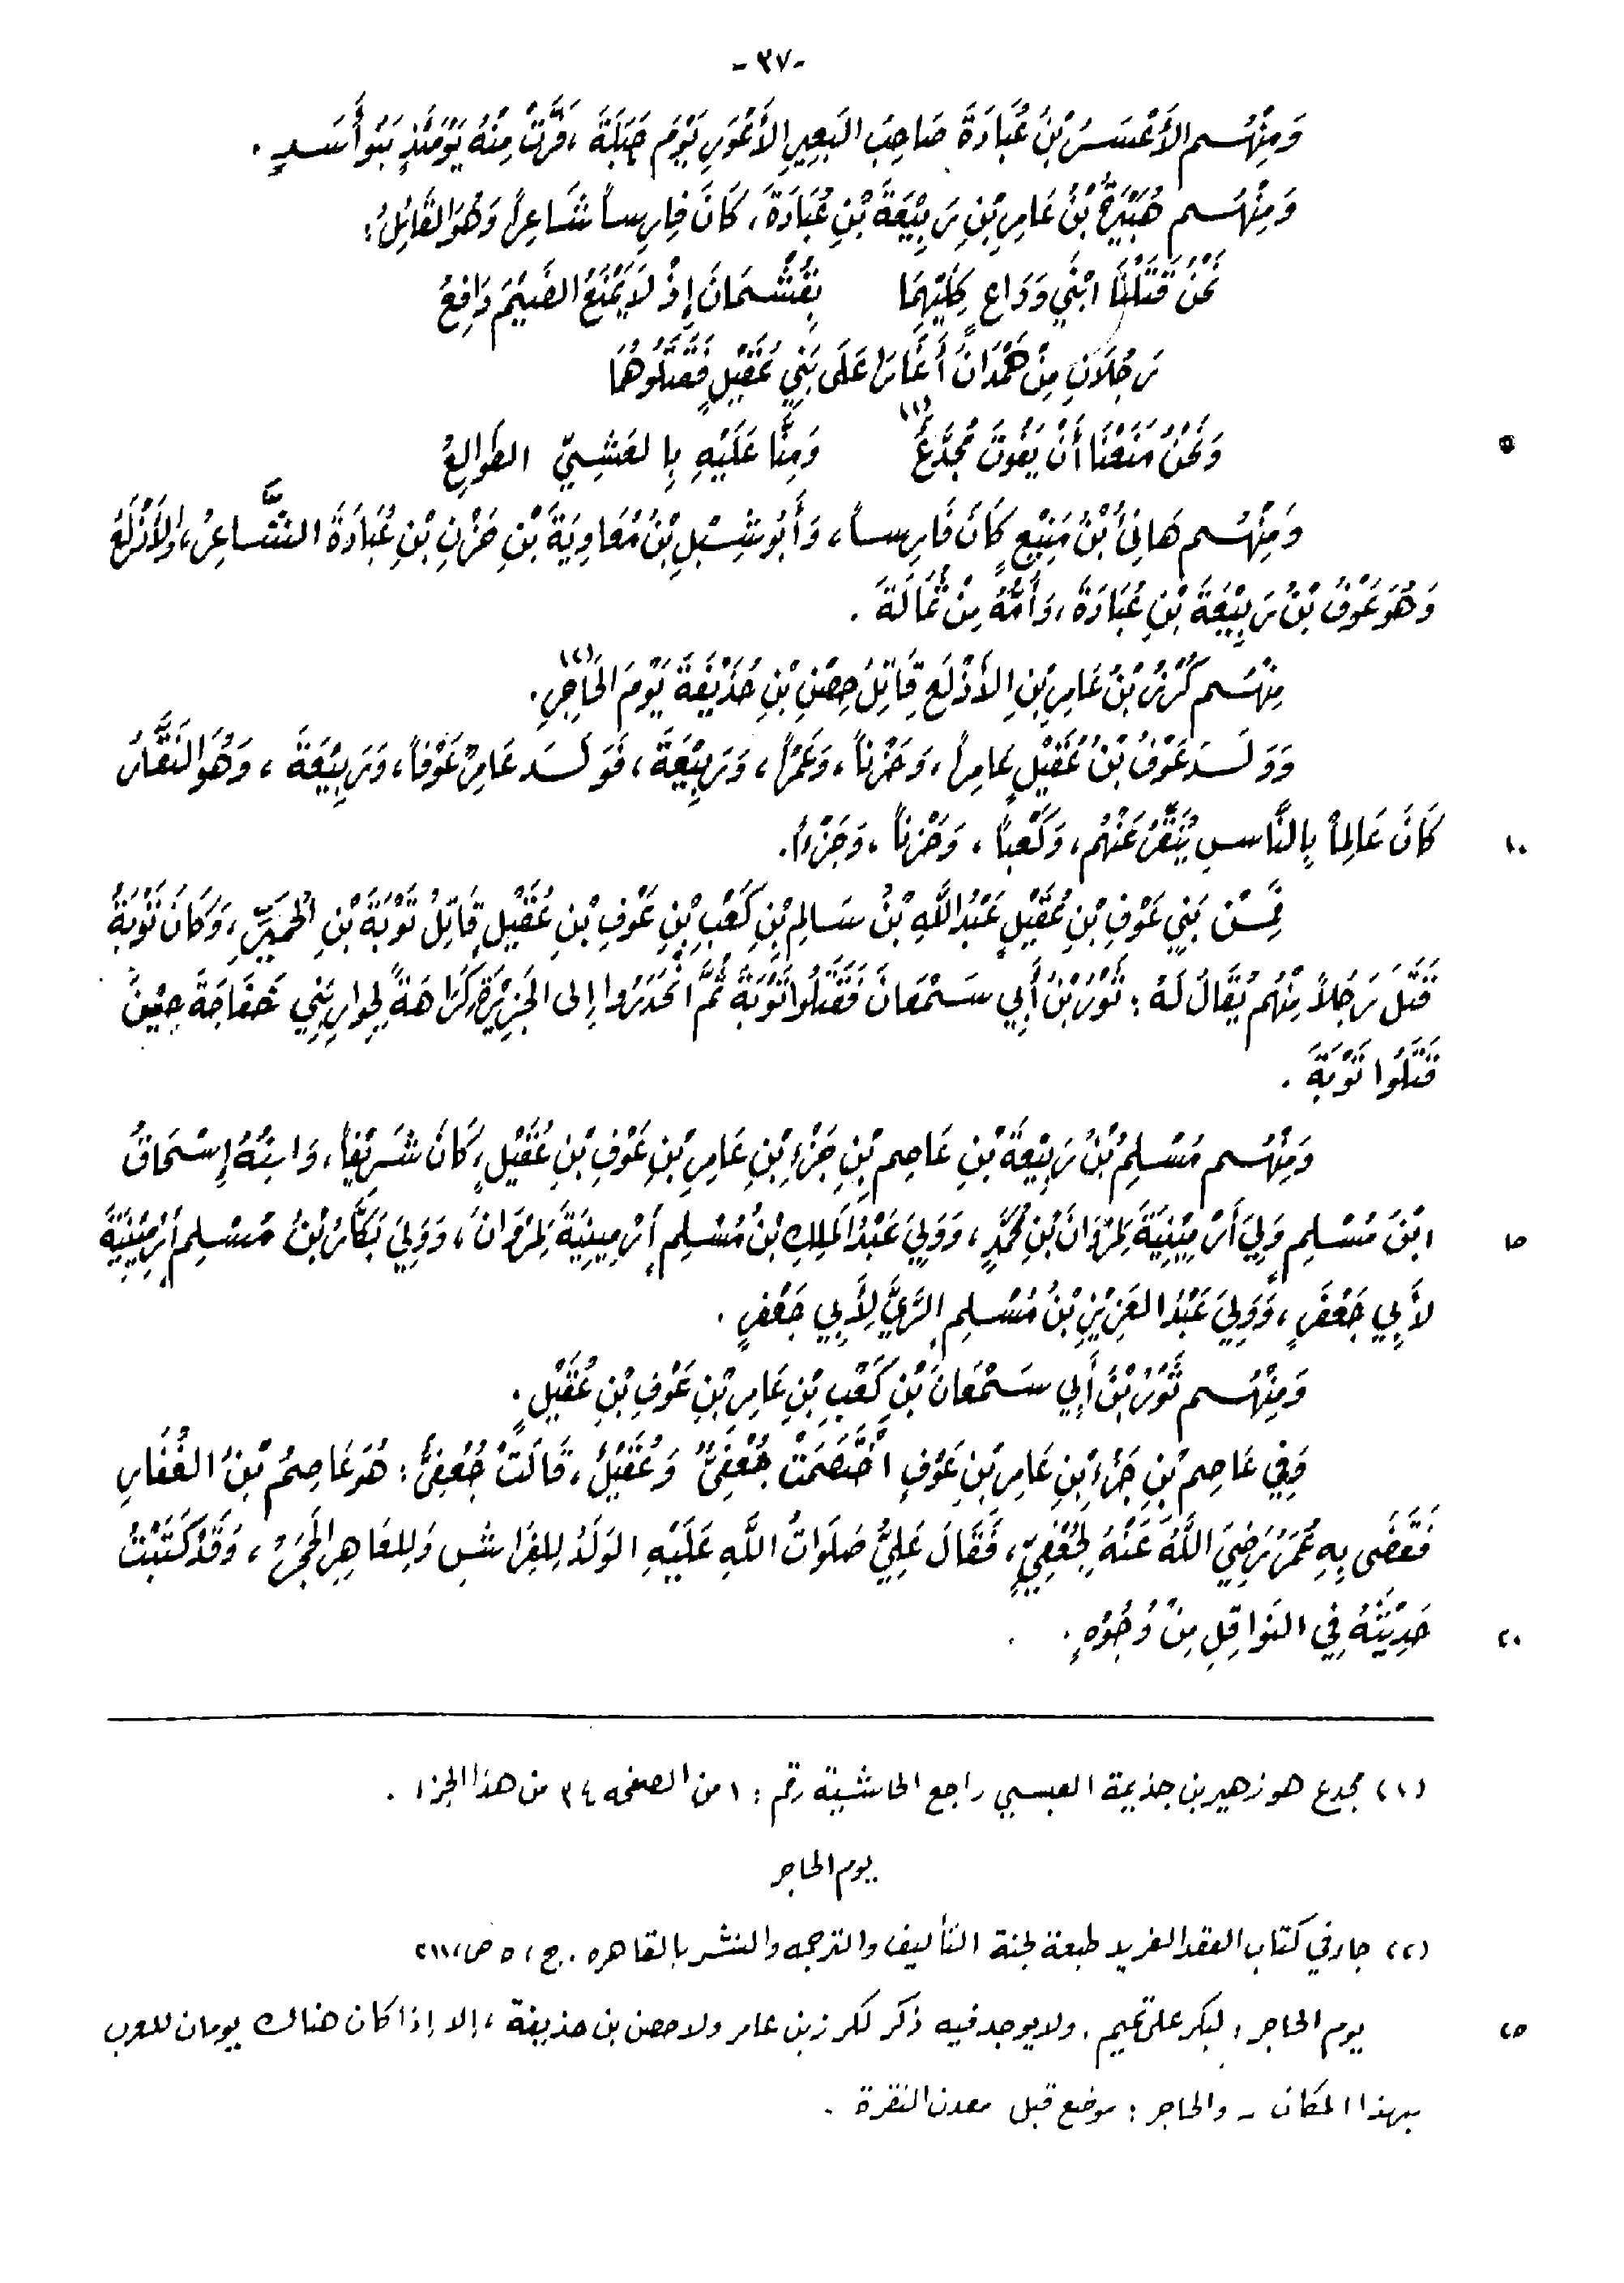 -٣٧-
وَمِنْهُم الأَعْسَرُ بْنُ عُبَادَةَ صَاحِبَ البَعِيرِ الأَعْوَرِ يَوْمَ جَبَلَةَ ، فَرَّتْ مِنْهُ يَوْمَئِذٍ بَنُو أَسَدٍ .
وَمِنْهُم هُبَيْرَةُ بْنُ عَامِرِ بْنِ رَبِيْعَةَ بْنِ عُبَادَةَ ، كَانَ فَارِساً شَاعِراً وَهُوَ القَائِلُ :
نَحْنُ قَتَلْنَا ابْنَي وَدَاعٍ كِلَيْهِمَا بِقُشْمَانَ إِذْ لاَ يَمْنَعُ الضَيْمَ دَافِعُ
رَجُلاَنِ مِنْ هَمْدَانَ أَغَارَا عَلَى بَنِي عُقَيْلٍ فَقَتَلُوهُمَا
٥ وَنَحْنُ مَنَعْنَا أَنْ يَفُوتَ مُجَدَّعٌ (١) وَمِنَّا عَلَيْهِ بِالعَشِيّ الطَوَالِعُ
وَمِنْهُم هَانِئُ بْنُ مَنِيْعٍ كَانَ فَارِساً ، وَأَبُو شِبْلِ بْنُ مُعَاوِيَةَ بْنِ حَزْنِ بْنِ عُبَادَةَ الشَّاعِرُ ، وَالأَذْلَعُ
وَهُوَ عَوْفُ بْنُ رَبِيْعَةَ بْنِ عُبَادَةَ ، وَأُمُّهُ مِنْ ثُمَالَةَ .
مِنْهُم كُرْزُ بْنُ عَامِرِ بْنِ الأَذْلَعِ قَاتِلُ حِصْنِ بْنِ حُذَيْفَةَ يَوْمَ الحَاجِرِ (٢) .
وَوَلَدَ عَوْفُ بْنُ عُقَيْلٍ عَامِراً ، وَحَزْناً ، وَعَمْراً ، وَرَبِيْعَةَ ، فَوَلَدَ عَامِرٌ عَوْفاً ، وَرَبِيْعَةَ ، وَهُوَ النَقَّارُ
١٠ كَانَ عَالِماً بِالنَّاسِ يُنَقِّرُ عَنْهُم ، وَكَعْباً ، وَحَزْناً ، وَجَزْءاً .
فَمِنْ بَنِي عَوْفِ بْنِ عُقَيْلٍ عَبْدُ اللَّهِ بْنُ سَالِمِ بْنِ كَعْبِ بْنِ عَوْفِ بْنِ عُقَيْلٍ قَاتِلُ تَوْبَةَ بْنِ الحُمَيِّرِ ، وَكَانَ تَوْبَةُ
قَتَلَ رَجُلاً مِنْهُم يُقَالُ لَهُ : ثَوْرُ بْنُ أَبِي سَمْعَانَ فَقَتَلُوا تَوْبَةَ ثُمَّ انْحَدَرُوا إِلى الجَزِيْرَةِ كَرَاهَةً لِجِوارِ بَنِي خَفَاجَةَ حِيْنَ
قَتَلُوا تَوْبَةَ .
وَمِنْهُم مُسْلِمُ بْنُ رَبِيْعَةَ بْنِ عَاصِمِ بْنِ جَزْءِ بْنِ عَامِرِ بْنِ عَوْفِ بْنِ عُقَيْلٍ ، كَانَ شَرِيْفاً ، وَابْنُهُ إِسْحَاقُ
١٥ ابْنُ مُسْلِمٍ وَلِيَ أَرْمِيْنِيَةَ لِمَرْوَانَ بْنِ مُحَمَّدٍ ، وَوَلِيَ عَبْدُ المَلِكِ بْنُ مُسْلِمٍ أَرْمِينِيَةَ لِمَرْوَانَ ، وَوَلِيَ بَكَّارُ بْنُ مُسْلِمٍ أَرْمِيْنِيَةَ
لأَبِي جَعْفَرٍ ، وَوَلِيَ عَبْدُ العَزِيْزِ بْنُ مُسْلِمٍ الرَّيَّ لِأَبِي جَعْفَرٍ .
وَمِنْهُم ثَوْرُ بْنُ أَبِي سَمْعَانَ بْنِ كَعْبِ بْنِ عَامِرِ بْنِ عَوْفِ بْنِ عُقَيْلٍ .
وَفِي عَاصِمِ بْنِ جَزْءِ بْنِ عَامِرِ بْنِ عَوْفٍ اخْتَصَمَتْ جُعْفِيٌّ وَعُقَيْلٌ ، قَالَتْ جُعْفِيُّ : هُوَ عَاصِمُ بْنُ الغُفَارِ
فَقَضَى بِهِ عُمَرُ رَضِيَ اللَّهُ عَنْهُ لِجُعْفِيٍّ ، فَقَالَ عَلِيُّ صَلَوَاتُ اللَّهِ عَلَيْهِ الوَلَدُ لِلفِرَاشِ وَلِلعَاهِرِ الحَجَرُ ، وَقَدْ كَتَبْتُ
٢٠ حَدِيْثَهُ فِي النَوَاقِلِ مِنْ وُجُوْهٍ .
(١) مجدع هو زهير بن جذيمة العبسي راجع الحاشية رقم : ١ من الصفحه ٣٤ من هذا الجزء .
يوم الحاجر
(٢) جاء في كتاب العقد الفريد طبعة لجنة التأليف والترجمه والنشر بالقاهره . ج ، ٥ ص ، ٢١١
٢٥ يوم الحاجر ، لبكر على تميم ، ولا يوجد فيه ذكر لكرز بن عامر ولا حصن بن حذيفة ، إلا إذا كان هناك يومان للعرب
بهذا المكان - والحاجر : موضع قبل معدن النقرة .